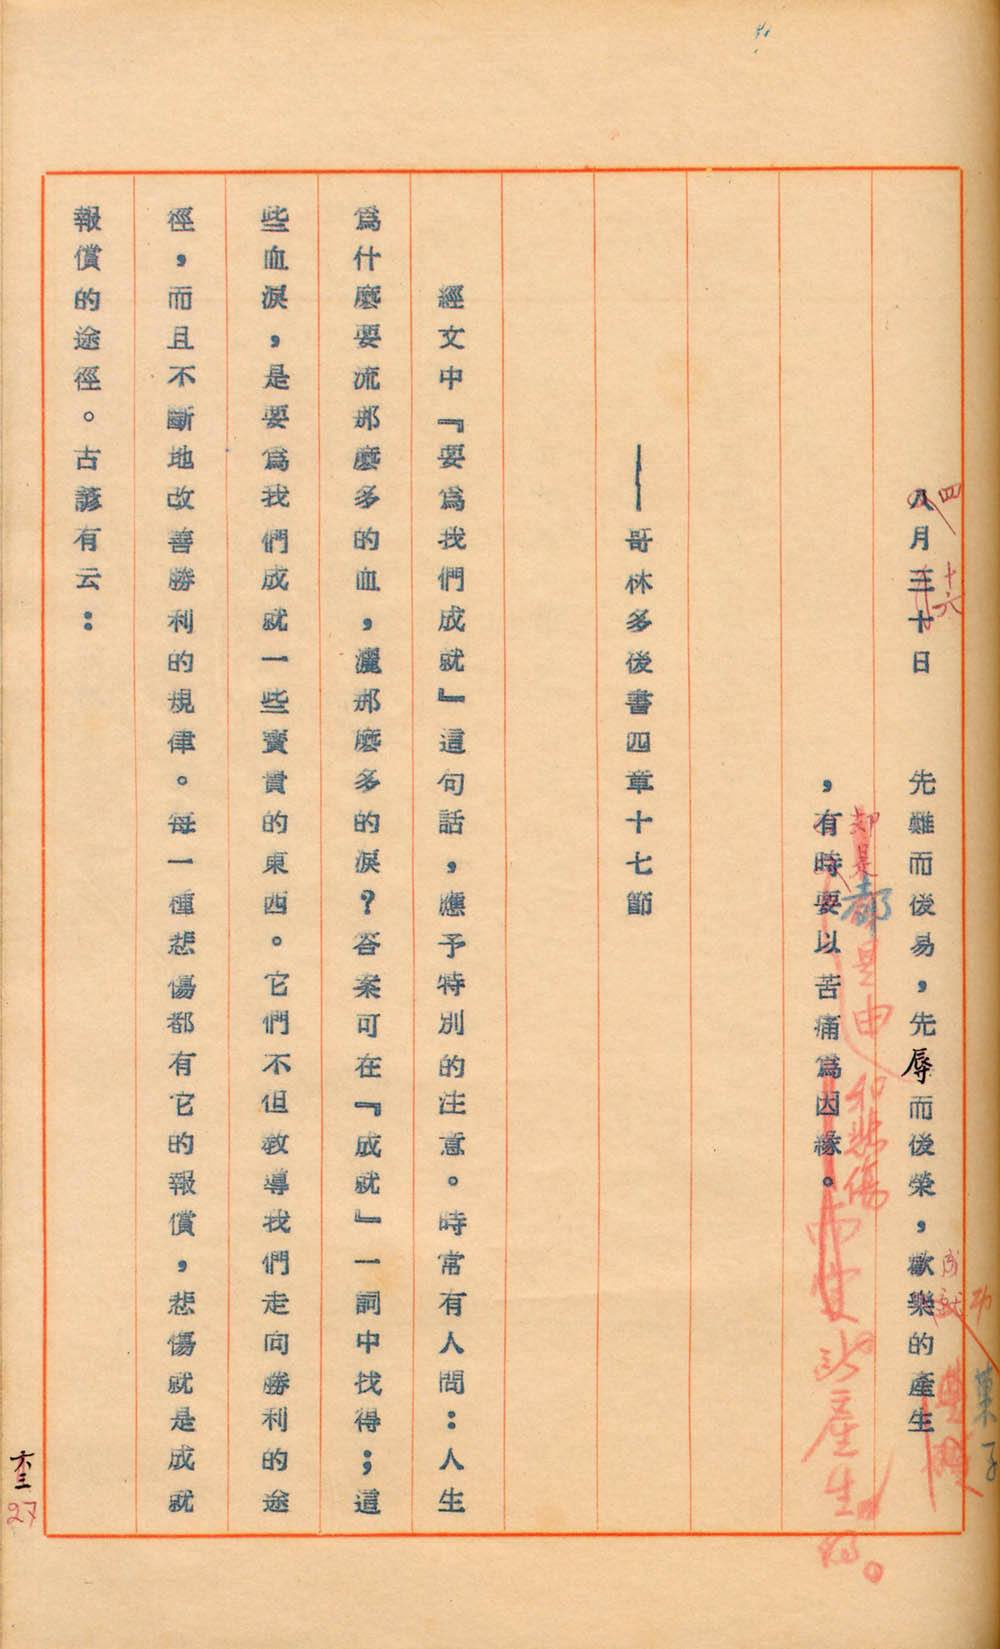 四
十六
八月三十日　先難而後易，先辱而後榮，歡樂的產生
成就
功
菓子
却是
都是由
和悲傷
，有時要以苦痛爲因緣。
產生
——哥林多後書四章十七節
經文中『要爲我們成就』這句話，應予特別的注意。時常有人問：人生
爲什麼要流那麼多的血，灑那麼多的淚？答案可在『成就』一詞中找得；這
些血淚，是要爲我們成就一些寶貴的東西。它們不但教導我們走向勝利的途
徑，而且不斷地改善勝利的規律。每一種悲傷都有它的報償，悲傷就是成就
報償的途徑。古諺有云：
27